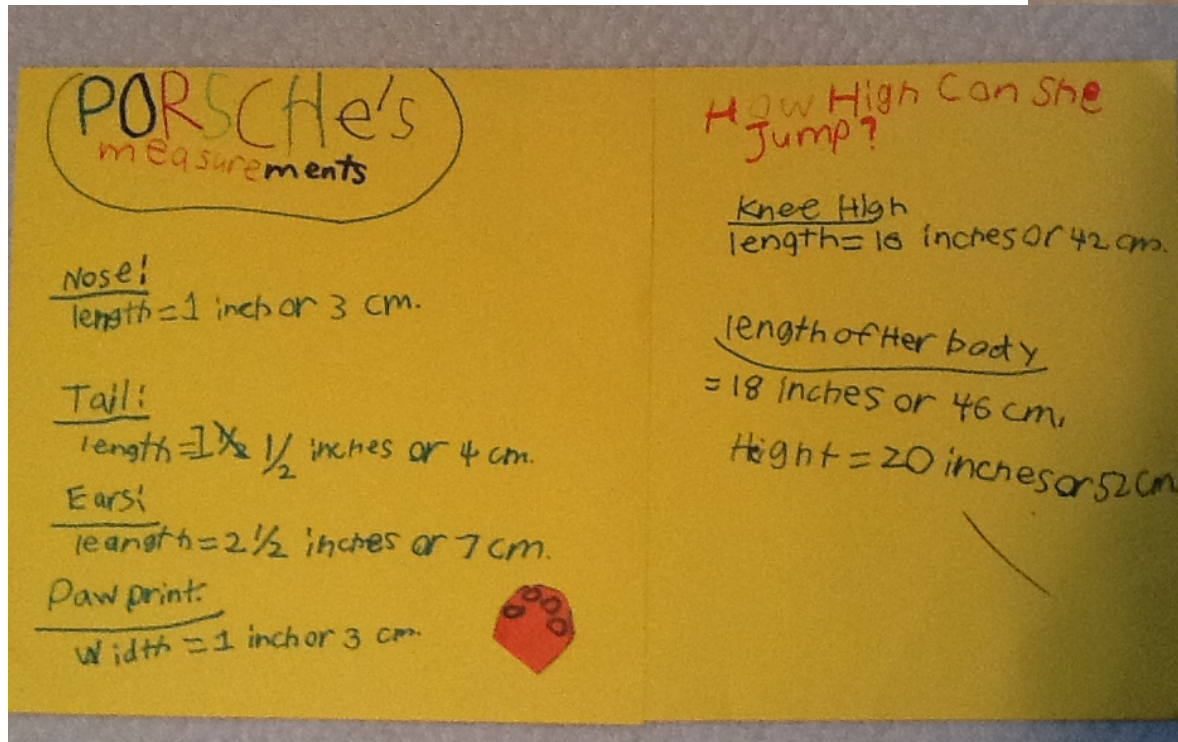 PORSCHe's
measurements
Nose!
length = 1 inch or 3 cm.
Tail:
length = 1 1/2 inches or 4 cm.
Ears:
leangth = 2 1/2 inches or 7 cm.
Paw print:
Width = 1 inch or 3 cm.
How High Can She
Jump?
Knee High
length = 16 inches or 42 cm.
length of Her body
= 18 inches or 46 cm.
Hight = 20 inches or 52 cm